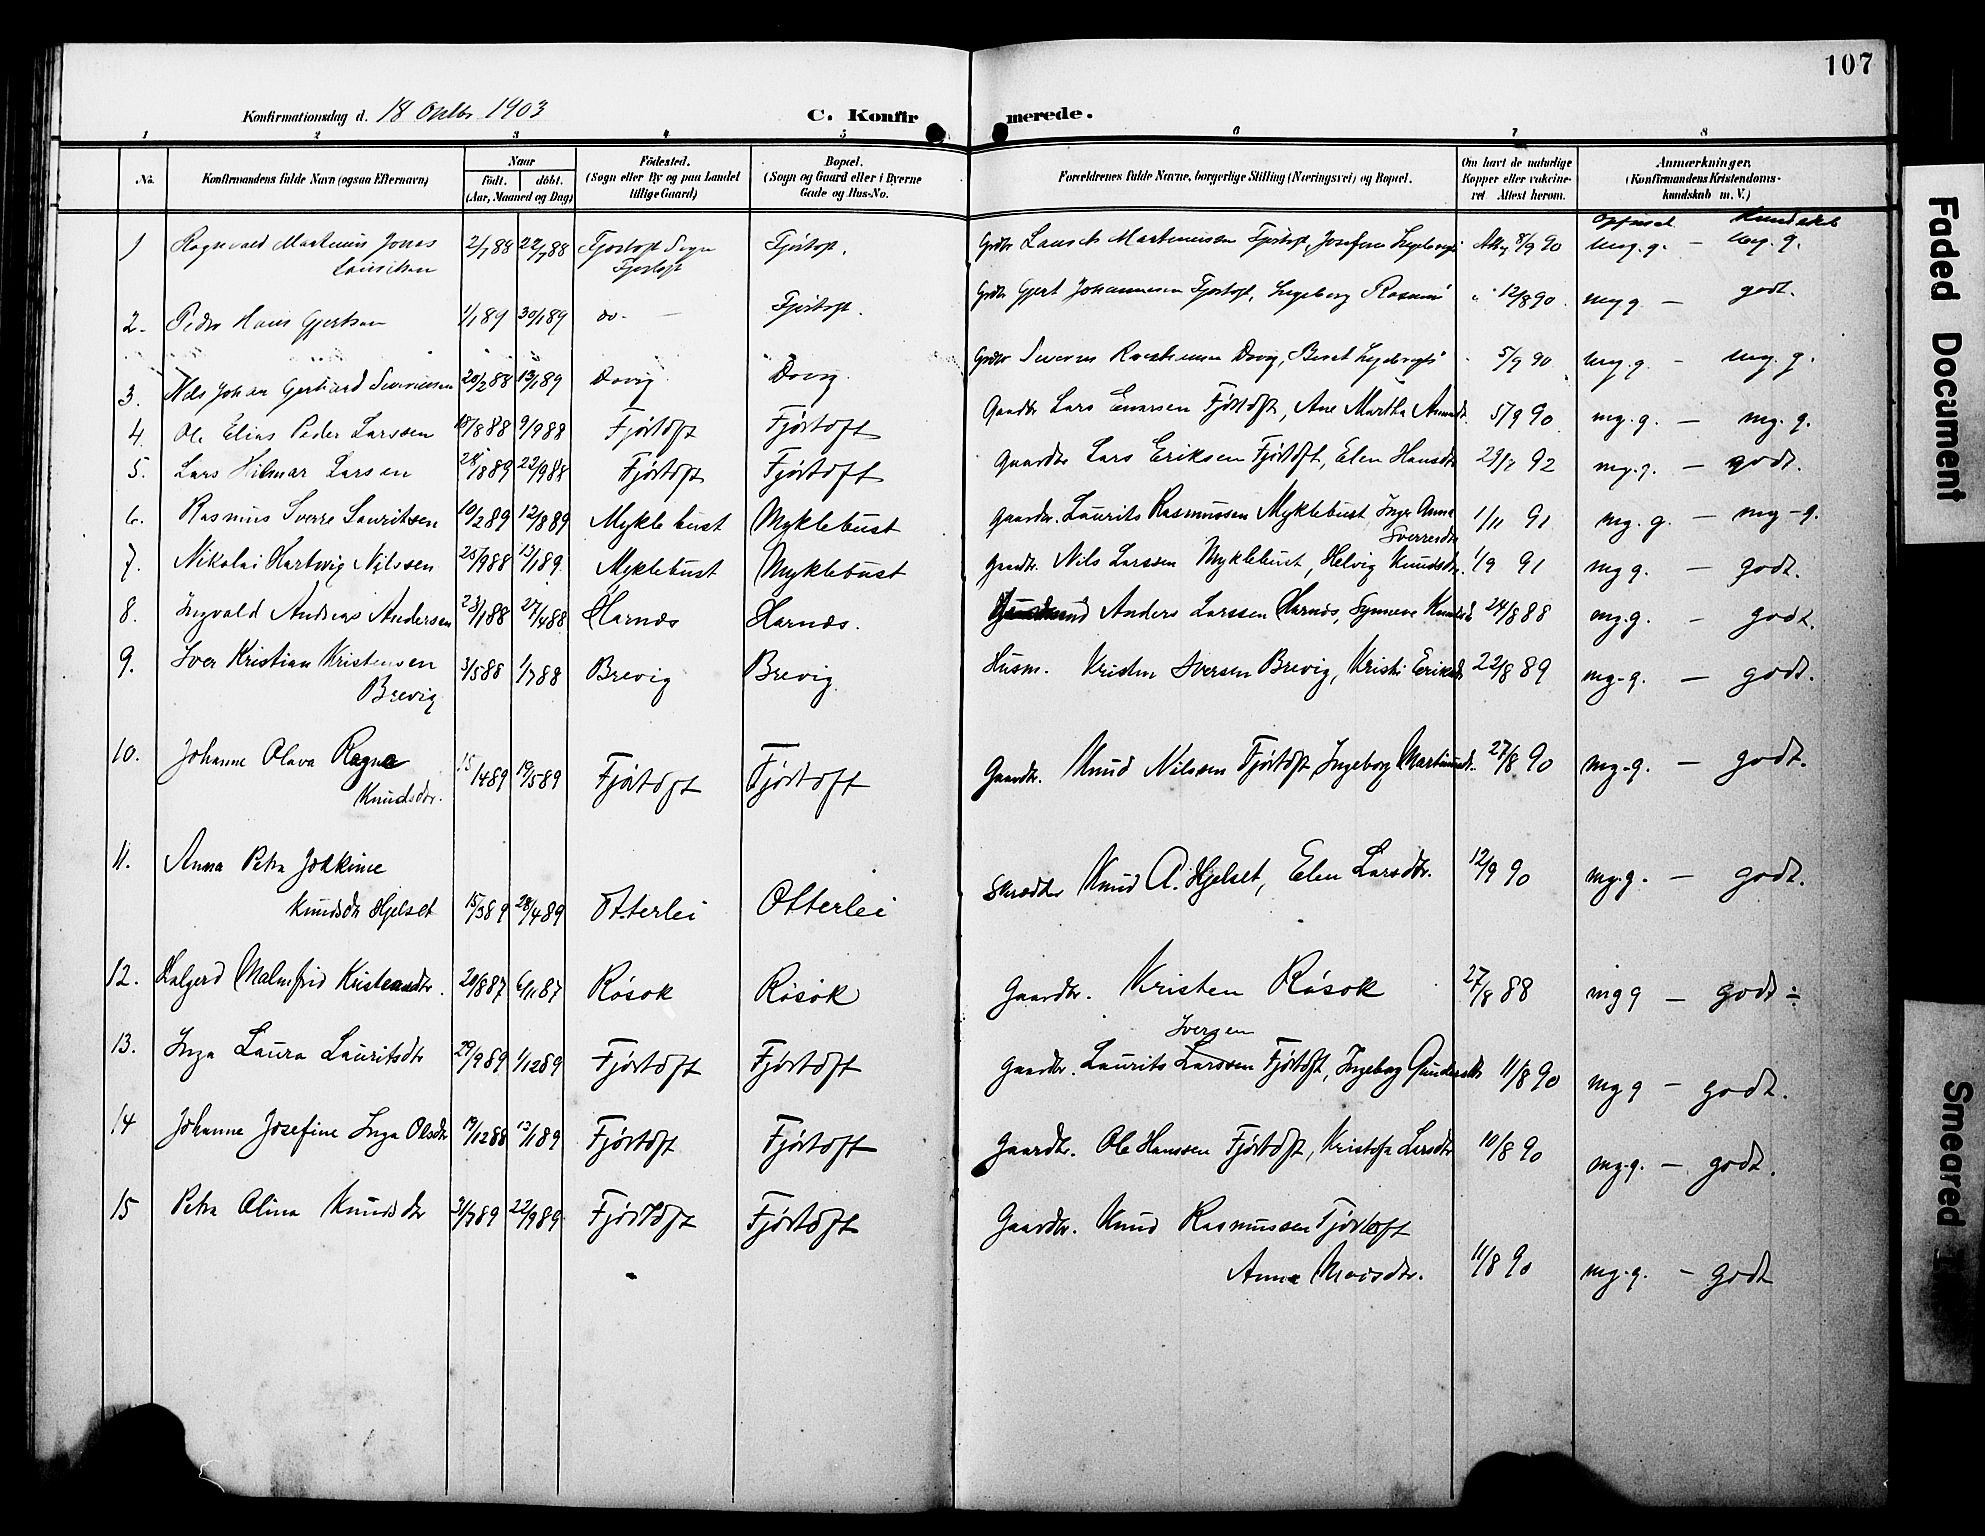 107
Konfirmationsdag d. 18 Octbr 1903 C. Konfirmerede.
1 2 3 4 5 6 7 8
No. Konfirmandens fulde Navn (ogsaa Efternavn) Naar født. døbt. (Aar, Maaned og Dag) Fødested. (Sogn eller By og paa Landet tillige Gaard) Bopæl. (Sogn og Gaard eller i Byerne Gade og Hus-No. Forældrenes fulde Navne, borgerlige Stilling (Næringsvei) og Bopæl. Om havt de naturlige Kopper eller vakcineret Attest herom. Anmærkninger. (Konfirmandens Kristendomskundskab m. V.)
Opførsel Kundskb
1 Ragnvald Martinius Jonas 2/7 88 22/7 88 Fjørtoft Sogn Fjørtoft. Grdbr Laurits Martinussen Fjørtoft, Josefine Ingebrigts 8/9 90 meg. g. – meg. g.
Lauritsen Fjørtoft
2. Peder Hans Gjertsen 1/1 89 30/1 89 do. — Fjørtoft. Grdbr Gjert Johannessen Fjørtoft, Ingeborg Rasmus " 12/8 90 meg g – godt.
3. Nils Johan Gerhard Severinsen 20/2 88 13/1 89 Dovig Dovig. Grdbr Severin Dovig, Beret Ingebrigts 5/9 90 meg g. – meg. g.
4. Ole Elias Peder Larssen 18/8 88 9/9 88 Fjørtoft Fjørtoft Gaardbr Lars Fjørtoft, Ane Martha 5/9 90 mg. g. – mg. g.
5. Lars Hilmar Larsen 28/8 89 22/9 88 Fjørtoft Fjørtoft Gaardbr Lars Eriksen Fjørtoft, Elen Hansdtr 23/7 92 mg. g. – godt.
6. Rasmus Sverre Lauritsen 10/2 89 12/8 89 Myklebust Myklebust Gaardbr. Laurits Rasmussen Myklebust, Inger Anna 1/11 91 mg. g. – mg - g.
Sverresdtr
7. Nikolai Hartvig Nilssen 25/9 88 13/1 89. Myklebust Myklebust Gaardbr. Nils Larssen Myklebust, Helvig Knudsdtr. 1/9 91 mg g. – godt.
8. Ingvald Andreas Andersen 23/1 88 27/4 88. Harnæs Harnæs. Anders Larssen Harnæs, Synneve Knudsdt 24/8 88 mg. g. – godt.
9. Iver Kristian Kristensen 3/5 88 1/7 88 Brevig Brevig. Husm. Kristen Iversen Brevig, Kristi Eriksdtr 22/8 89 mg - g. – godt.
Brevig
10. Johanne Olava Ragna 15/4 89 19/5 89 Fjørtoft Fjørtoft Gaardbr. Knud Nilssen Fjørtoft, Ingeborg Martinusdt. 27/8 90 mg. - g. – godt.
Knudsdtr.
11. Anna Petra Joakime
Knudsdtr Hjelset 15/3 89 28/4 89 Otterlei Otterlei Skrædder Knud A. Hjelset, Elen Larsdtr. 12/9 90 mg. g. – godt.
12. Halgerd Malmfrid Kristensdtr. 20/8 87 6/11 87 Røsok Røsok Gaardbr. Kristen Røsok 27/8 88 mg g – godt ÷
Iversen
13. Inga Laura Lauritsdtr 29/9 89 1/12 89 Fjørtoft Fjørtoft Gaardbr. Laurits Larssen Fjørtoft, Ingeborg Gundersdtr 11/8 90 mg g – godt.
14 Johanne Josefine Inga Olsdtr 19/12 88 13/1 89 Fjørtoft Fjørtoft Gaardbr. Ole Hanssen Fjørtoft, Kristofa Larsdtr 10/8 90 mg. g. – godt.
15 Petra Olina Knudsdtr 31/7 89 22/9 89 Fjørtoft Fjørtoft Gaardbr. Knud Rasmussen Fjørtoft
Anne Madsdtr. 11/8 90 mg. g. – godt
Faded Document
Smeared